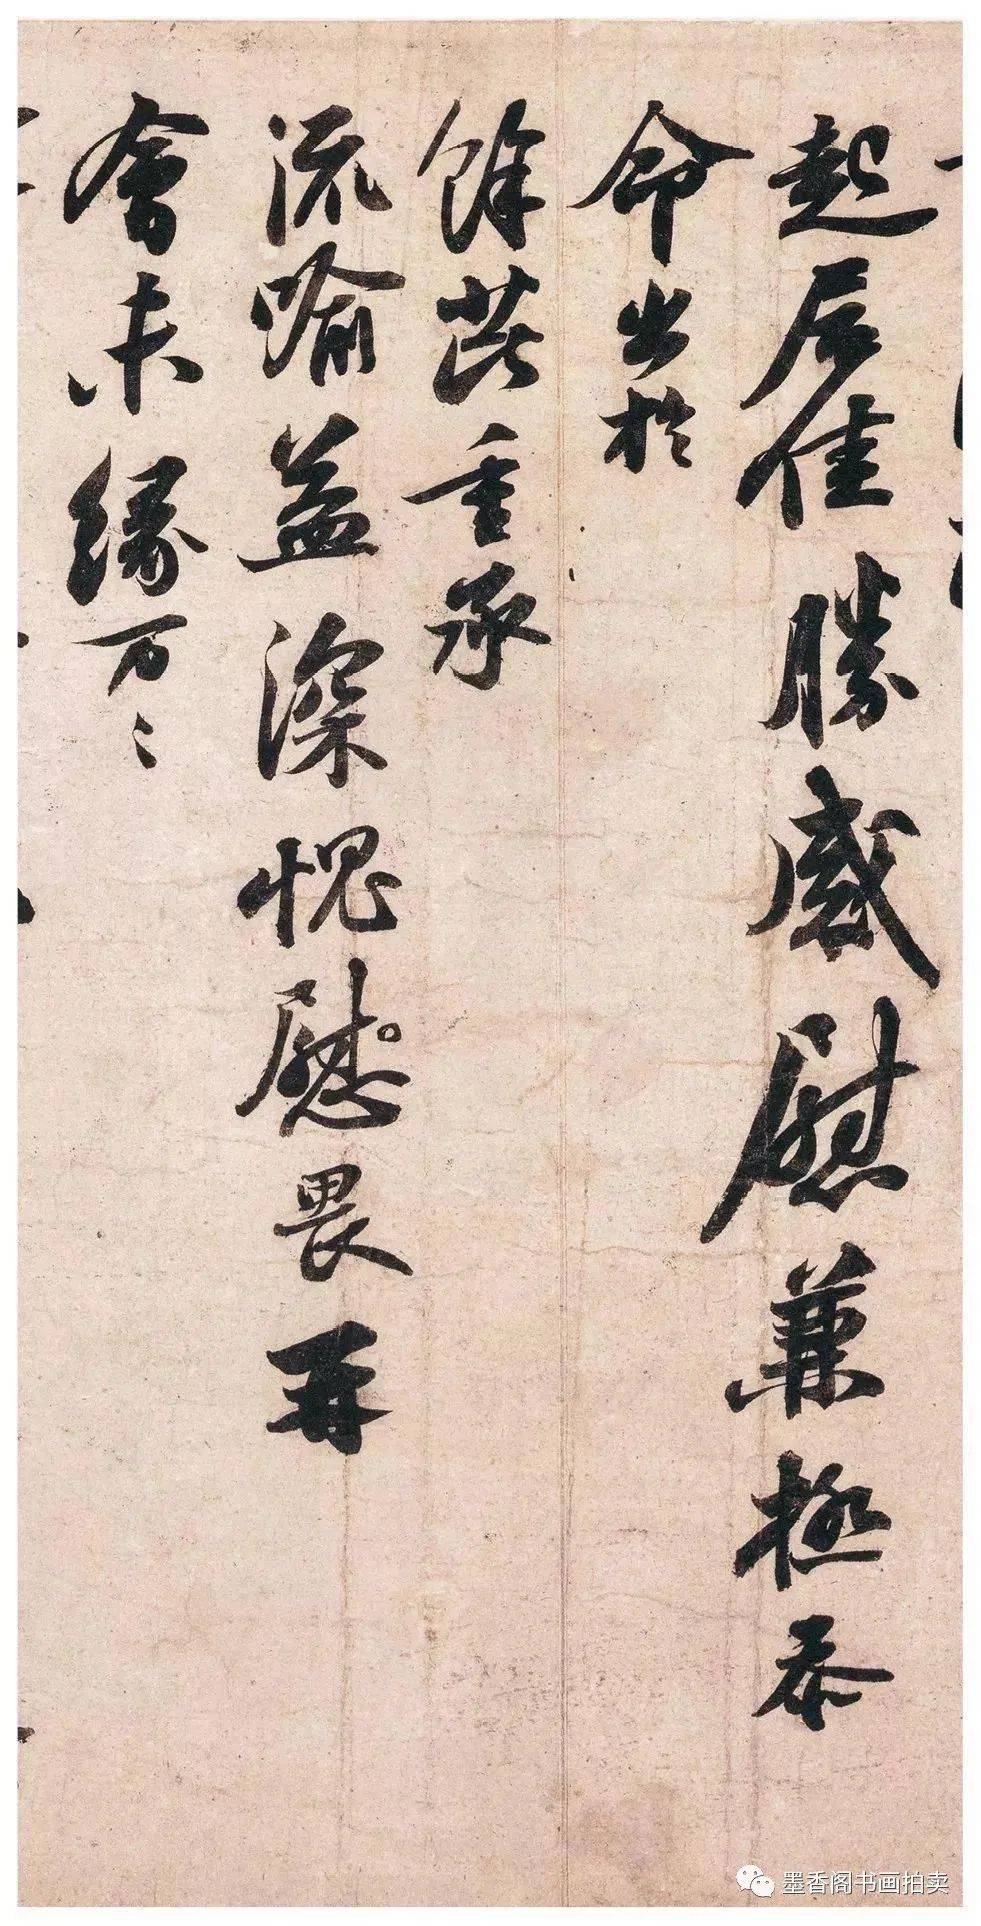 起居佳勝感慰兼極忝
命出於
餘芘重承
流喻益深愧慰畏再
會未緣万〻
墨香阁书画拍卖